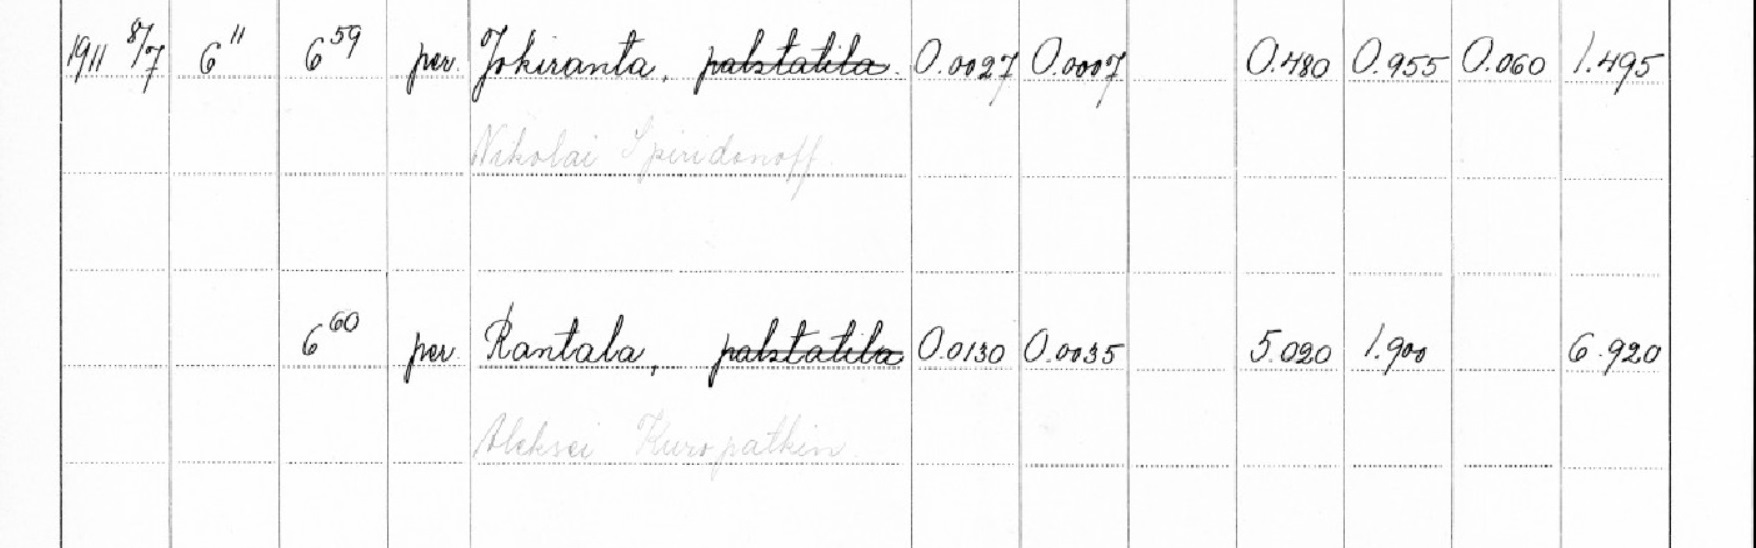 1911 8/7 6¹¹ 6⁵⁹ per. Jokiranta, palstatila. 0.0027 0.0007 0.480 0.955 0.060 1.495
Nikolai Spiridonoff.
6⁶⁰ per. Rantala, palstatila 0.0130 0.0035 5.020 1.900 6.920
Aleksei Kuropatkin.